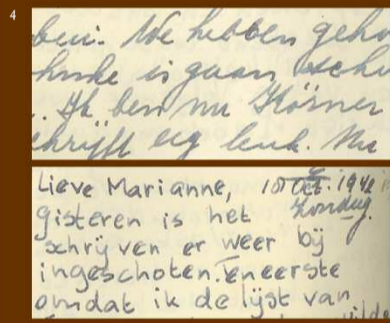 4
ben. We hebben geho
hnke is gaan schu
. Ik ben nu Körner
chrijft erg leuk. Nu
Lieve Marianne, 18 Oct. 1942
zondag.
gisteren is het
schrijven er weer bij
ingeschoten. Teneerste
omdat ik de lijst van